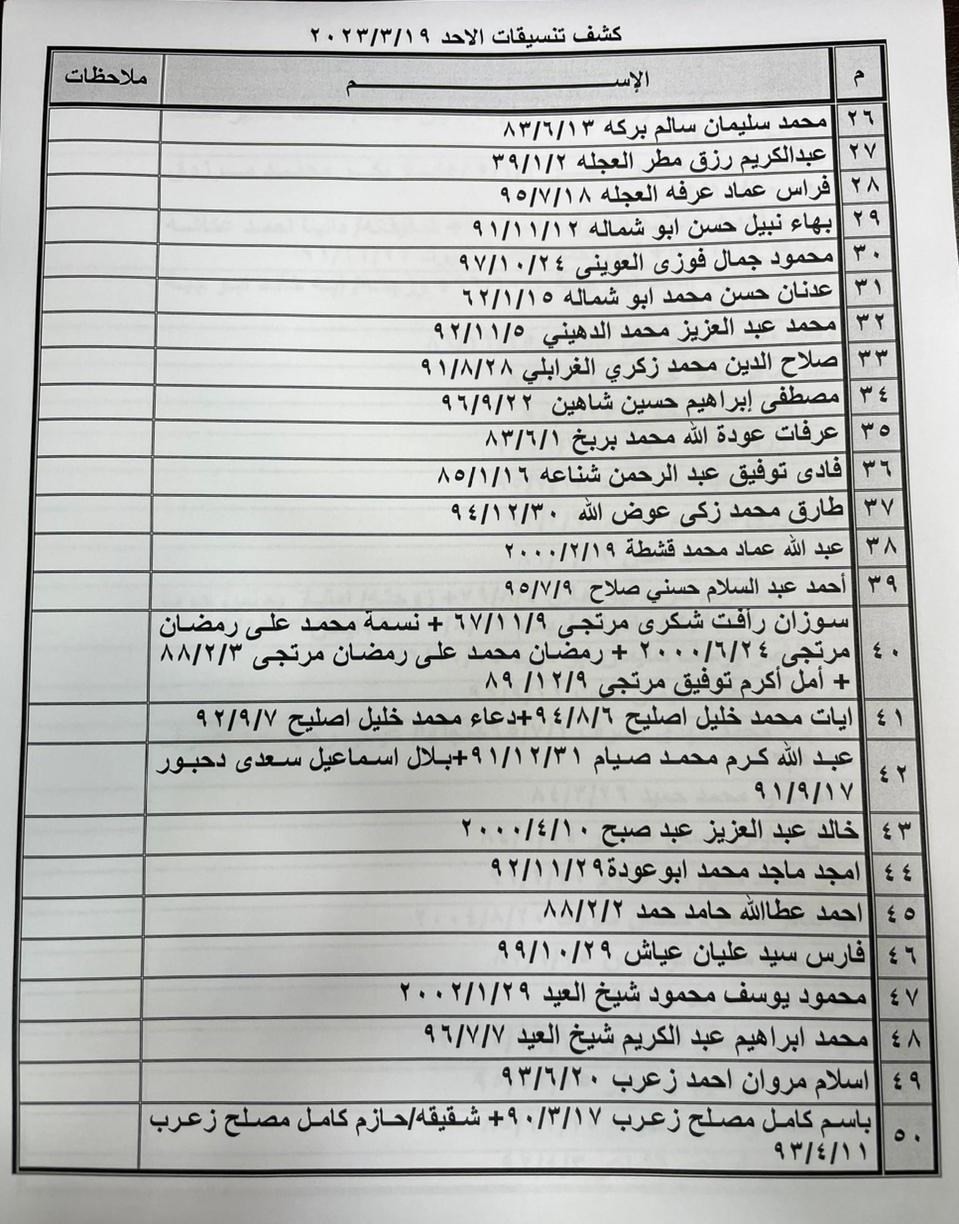 كشف تنسيقات الاحد ٢٠٢٣/٣/١٩
م الإســـــــــــــــــم ملاحظات
٢٦ محمد سليمان سالم بركه ٨٣/٦/١٣
٢٧ عبدالكريم رزق مطر العجله ٣٩/١/٢
٢٨ فراس عماد عرفه العجله ٩٥/٧/١٨
٢٩ بهاء نبيل حسن ابو شماله ٩١/١١/١٢
٣٠ محمود جمال فوزى العوينى ٩٧/١٠/٢٤
٣١ عدنان حسن محمد ابو شماله ٦٢/١/١٥
٣٢ محمد عبد العزيز محمد الدهيني ٩٢/١١/٥
٣٣ صلاح الدين محمد زكري الغرابلي ٩١/٨/٢٨
٣٤ مصطفى إبراهيم حسين شاهين ٩٦/٩/٢٢
٣٥ عرفات عودة الله محمد بربخ ٨٣/٦/١
٣٦ فادى توفيق عبد الرحمن شناعه ٨٥/١/١٦
٣٧ طارق محمد زكى عوض الله ٩٤/١٢/٣٠
٣٨ عبد الله عماد محمد قشطة ٢٠٠٠/٢/١٩
٣٩ أحمد عبد السلام حسني صلاح ٩٥/٧/٩
سوزان رأفت شكرى مرتجى ٦٧/١١/٩ + نسمة محمد على رمضان
٤٠ مرتجى ٢٠٠٠/٦/٢٤ + رمضان محمد على رمضان مرتجى ٨٨/٢/٣
+ أمل أكرم توفيق مرتجى ٨٩/١٢/٩
٤١ ايات محمد خليل اصليح ٩٤/٨/٦+دعاء محمد خليل اصليح ٩٢/٩/٧
٤٢ عبد الله كرم محمد صيام ٩١/١٢/٣١+بلال اسماعيل سعدى دحبور
٩١/٩/١٧
٤٣ خالد عبد العزيز عبد صبح ٢٠٠٠/٤/١٠
٤٤ امجد ماجد محمد ابوعودة٩٢/١١/٢٩
٤٥ احمد عطاالله حامد حمد ٨٨/٢/٢
٤٦ فارس سيد عليان عياش ٩٩/١٠/٢٩
٤٧ محمود يوسف محمود شيخ العيد ٢٠٠٢/١/٢٩
٤٨ محمد ابراهيم عبد الكريم شيخ العيد ٩٦/٧/٧
٤٩ اسلام مروان احمد زعرب ٩٣/٦/٢٠
٥٠ باسم كامل مصلح زعرب ٩٠/٣/١٧+ شقيقه/حازم كامل مصلح زعرب
٩٣/٤/١١